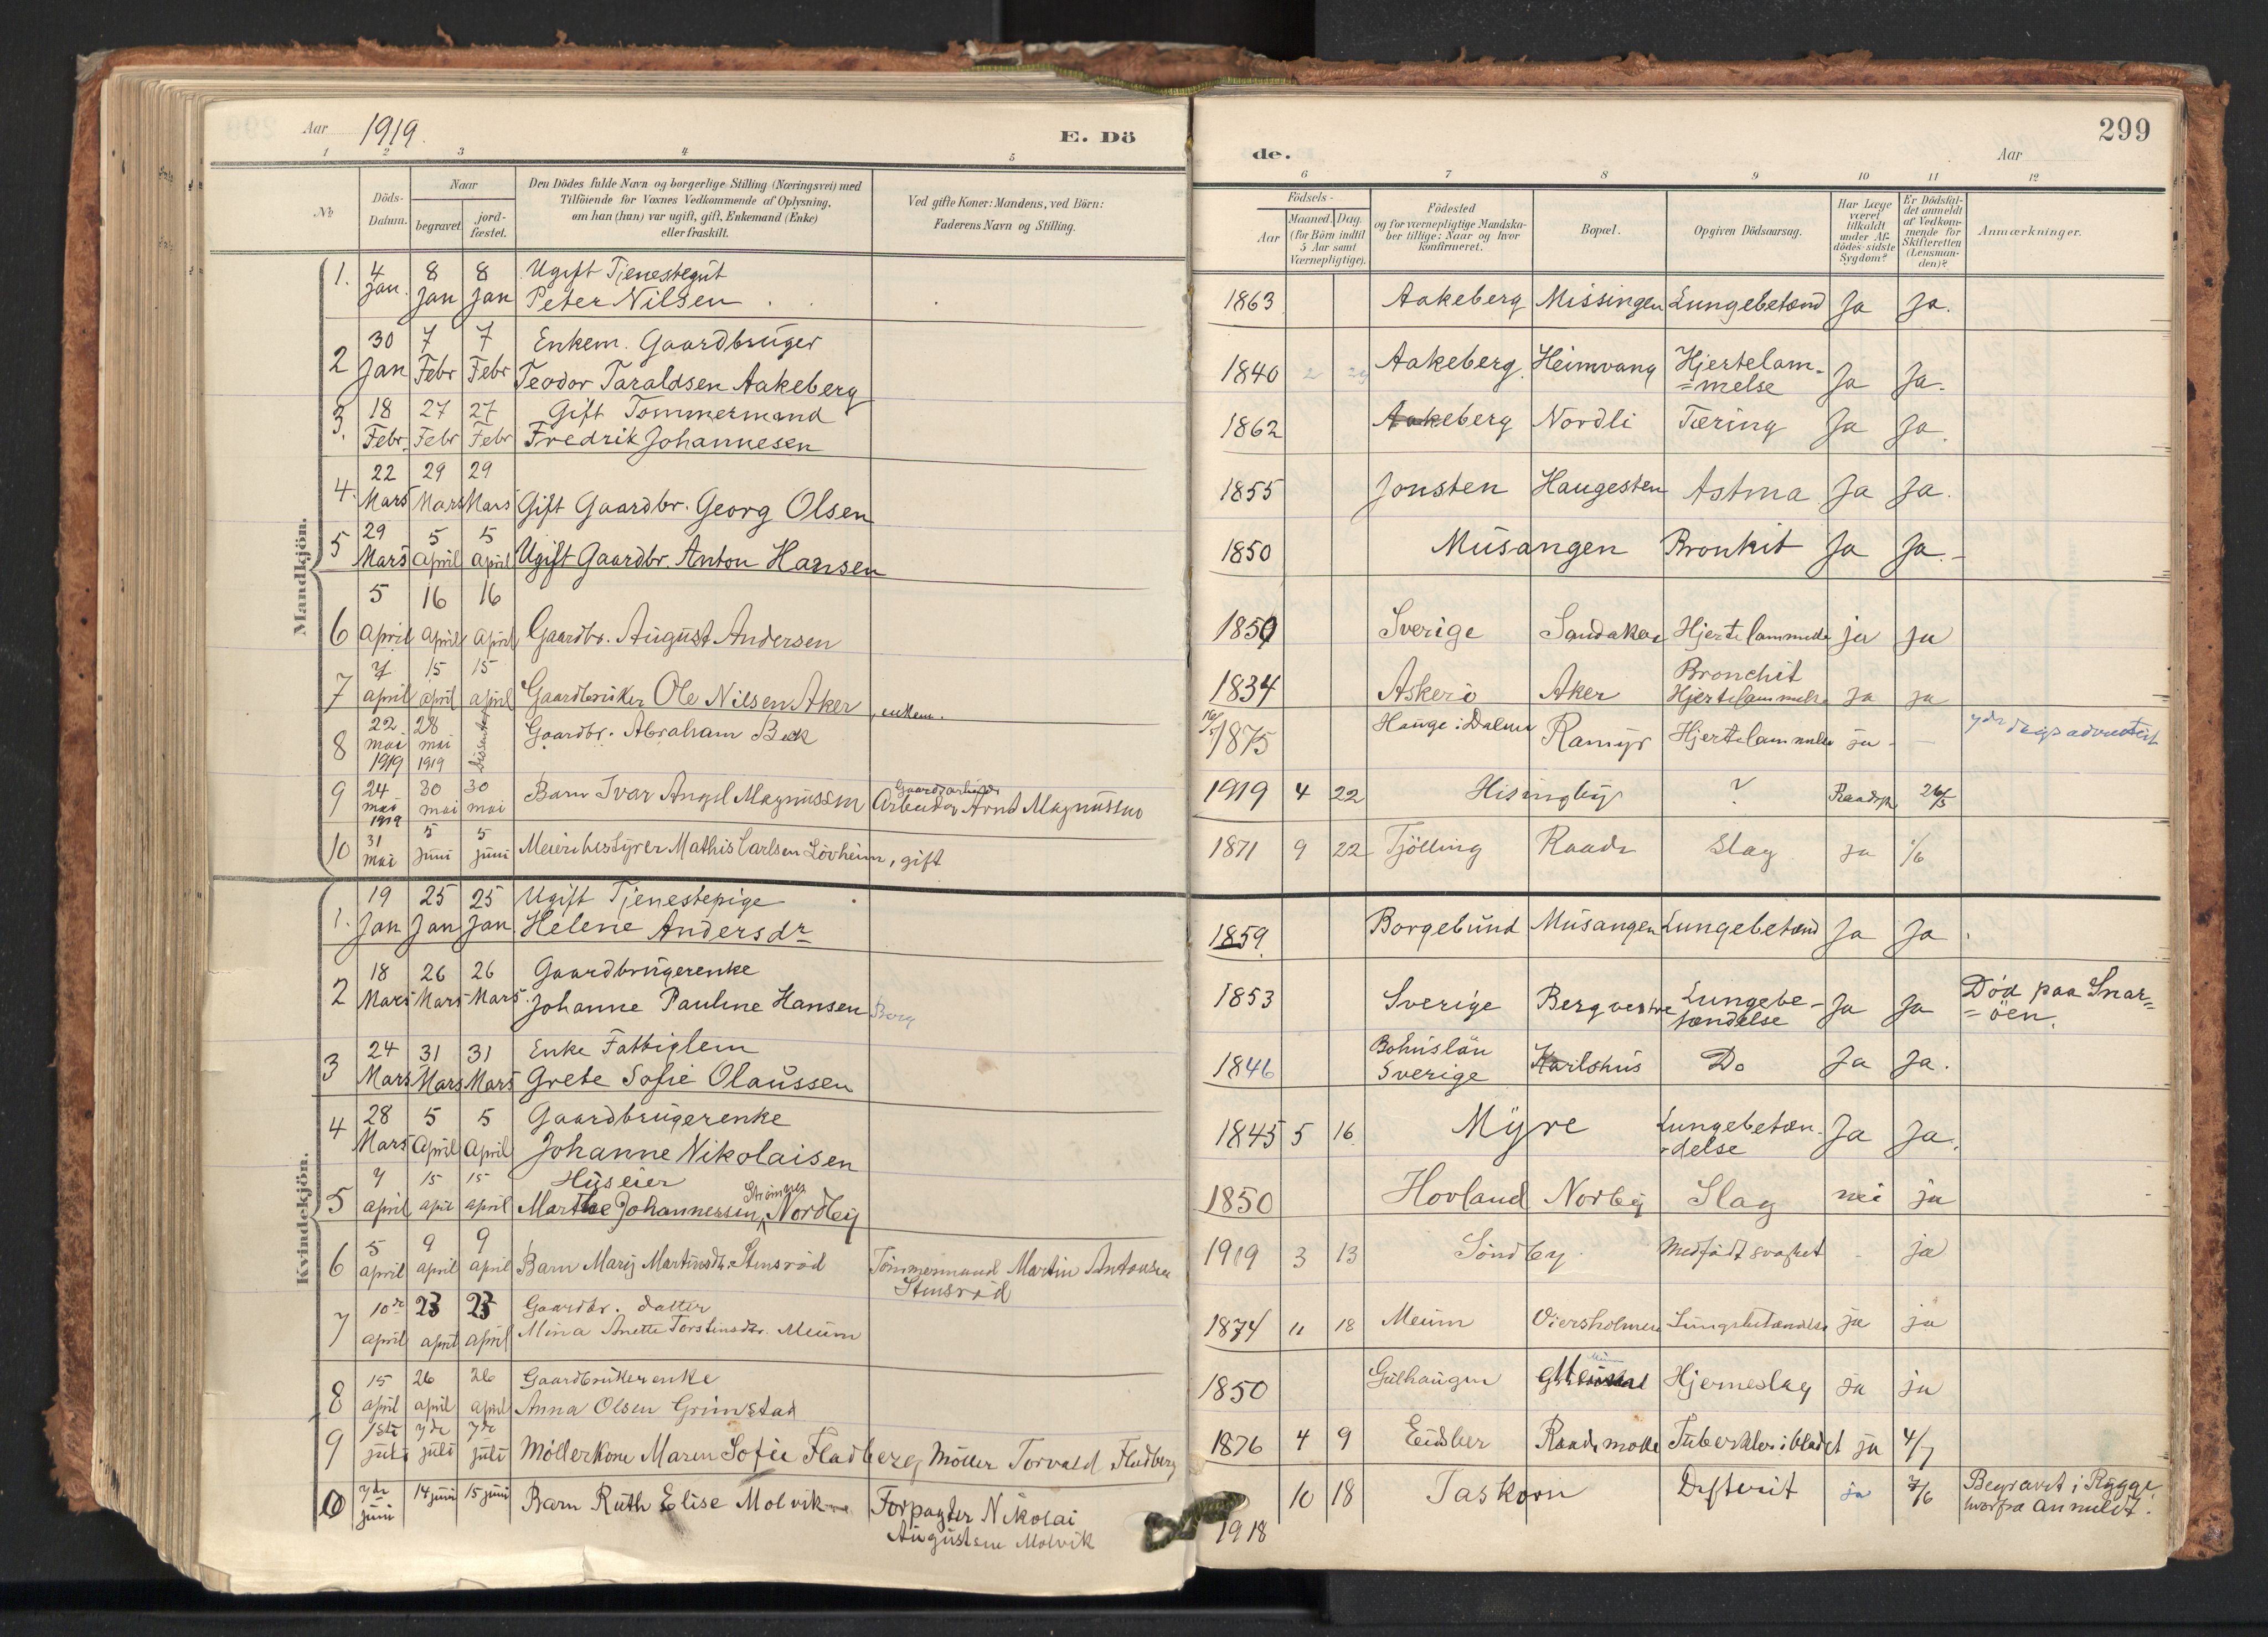 Aar 1919. E. Dö
1 2 3 4 5
№ Döds-Datum. Naar begravet. jord-fæstet.
Den Dödes fulde Navn og borgerlige Stilling (Næringsvei) med
Tilföiende for Voxnes Vedkommende af Oplysning,
om han (hun) var ugift, gift, Enkemand (Enke)
eller fraskilt.
Ved gifte Koner: Mandens, ved Börn:
Faderens Navn og Stilling.
Mandkjön.
1. 4 Jan. 8 Jan 8 Jan Ugift Tjenestegut
Peter Nilsen
2 30 Jan 7 Febr 7 Febr Enkem. Gaardbruger
Teodor Taraldsen Aakeberg
3. 18 Febr. 27 Febr 27 Febr Gift Tommermand
Fredrik Johannesen
4. 22 Mars 29 Mars 29 Mars Gift Gaardbr. Georg Olsen
5 29 Mars 5 April 5 April Ugift Gaardbr. Anton Hansen
6 5 april 16 april 16 april Gaardbr. August Andersen
7 7 april 15 april 15 april Gaardbruker Ole Nilsen Aker, enkem.
8 22 mai 1919 28 mai 1919 Gaardbr. Abraham Bek
9 24 mai 1919 30 mai 30 mai Barn Ivar Angel Magnussen Gaardsarbeider
Arbeider Arnt Magnussen
10 31 mai 5 juni 5 juni Meieribestyrer Mathis Carlsen Lövheim, gift
Kvindekjön.
1. 19 Jan 25 Jan 25 Jan Ugift Tjenestepige
Helene Andersdr
2 18 Mars 26 Mars 26 Mars Gaardbrugerenke
Johanne Pauline Hansen Berg
3 24 Mars 31 Mars 31 Mars Enke Fattiglem
Grete Sofie Olaussen
4 28 Mars 5 April 5 April Gaardbrugerenke
Johanne Nikolaisen
5 7 april 15 april 15 april Huseier
Marthe Johannessen Strömnes Nordby
6 5 april 9 april 9 april Barn Mary Martinsdr. Stensröd Tömmermand Martin Antonsen
Stensröd
7 10de april 23 april 23 april Gaardbr. datter
Mina Anette Torstensdtr. Meum
8 15 april 26 april 26 april Gaardbrukerenke
Anna Olsen Grimstad
9 1ste juli 7de juli 7de juli Möllerkone Maren Sofie Fladberg Möller Torvald Fladberg
10 7de juni 14 juni 15 juni Barn Ruth Elise Molvik Forpagter Nikolai
Augustsen Molvik
de. Aar 299
6 7 8 9 10 11 12
Födsels-
Aar Maaned. Dag.
(for Börn indtil
5 Aar samt
Værnepligtige).
Födested
og for værnepligtige Mandska-
ber tillige: Naar og hvor
konfirmeret.
Bopæl.
Opgiven Dödsaarsag.
Har Læge
været
tilkaldt
under Af-
dödes sidste
Sygdom?
Er Dödsfal-
det anmeldt
af Vedkom-
mende for
Skifteretten
(Lensman-
den)?
Anmærkninger.
1863 Aakeberg Missingen Lungebetænd Ja Ja.
1840 2 29 Aakeberg. Heimvang Hjertelam-
=melse Ja Ja.
1862 Aakeberg Nordli Tæring Ja Ja.
1855 Jonsten Haugesten Astma Ja Ja.
1850 Musangen Bronkit Ja Ja.
1850 Sverige Sandaker Hjertelammelse ja ja
1834 Askerö Aker Bronchit
Hjertelammelse ja ja
1875 Hauge i Dalene Ramyr Hjertelammelse ja - 7de dags adventist
1919 4 22 Hisingby ? 26/5
1871 9 22 Tjölling Raade Slag ja 1/6
1859. Borgebund Musangen Lungebetænd Ja Ja.
1853 Sverige Berg vestre Lungebe-
tændelse Ja Ja Död paa Snar=
=öen.
1846 Bohuslän
Sverige Karlshus Do Ja Ja.
1845 5 16 Myre Lungebetæn-
-delse Ja Ja.
1850 Hovland Norby Slag nei ja
1919 3 13 Sundby Medfödt svakhet - ja
1874 11 18 Meum Viersholmen Lungebetændelse ja ja
1850 Gulhaugen Meum Hjerneslag ja ja
1876 4 9 Eidsber Raade mölle Tuberkler i blodet ja 4/7
1918 10 18 Taskorn Difterit ja 7/6 Begravet i Rygge,
hvorfra anmeldt.